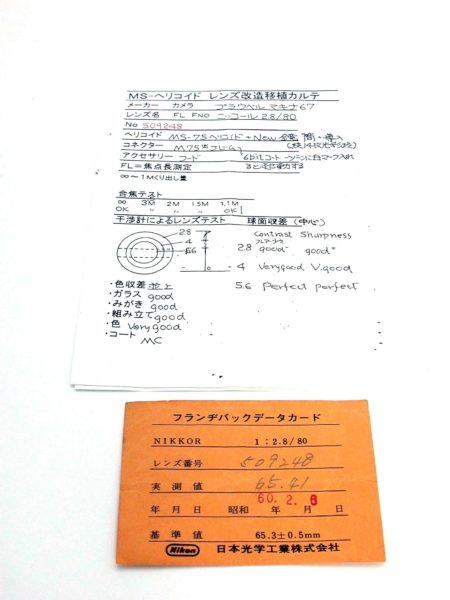 MS-ヘリコイド レンズ改造移植カルテ
メーカー カメラ プラウベル マキナ67
レンズ名 FL FNO ニッコール 2.8/80
No 509248
ヘリコイド MS-75ヘリコイド + New
コネクター M75
アクセサリー フード 6bitコード
FL=焦点長測定
∞〜1Mくり出し量
合焦テスト
∞ 3M 2M 1.5M 1.1M
OK 〃 〃 〃 OK
干渉計によるレンズテスト 球面収差(中心)
Contrast Sharpness
2.8 2.8 good good
4 4 Verygood V.good
5.6 5.6 Perfect perfect
・色収差 並上
・ガラス good
・みがき good
・組み立て good
・色 Very good
・コート MC
フランヂバックデータカード
NIKKOR 1:2.8/80
レンズ番号 509248
実測値 65.41
60.2.6
年月日 昭和 年 月 日
基準値 65.3±0.5mm
Nikon 日本光学工業株式会社